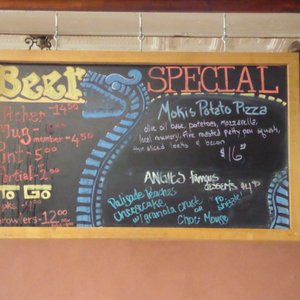 Beer
itcher - 14.50
Mug -
member - 4.50
Pint - 5.00
artial - 2.00
To Go
rowlers - 12.00
SPECIAL
Mokis Potato Pizza
olive oil base, potatoes, mozzarella,
local rosemary, fire roasted patty pan squash,
thin sliced leeks & bacon
$16
ANGIE'S famous
desserts $4
Palisade Peaches
Cheesecake
w/ granola crust
or
Choc Mousse